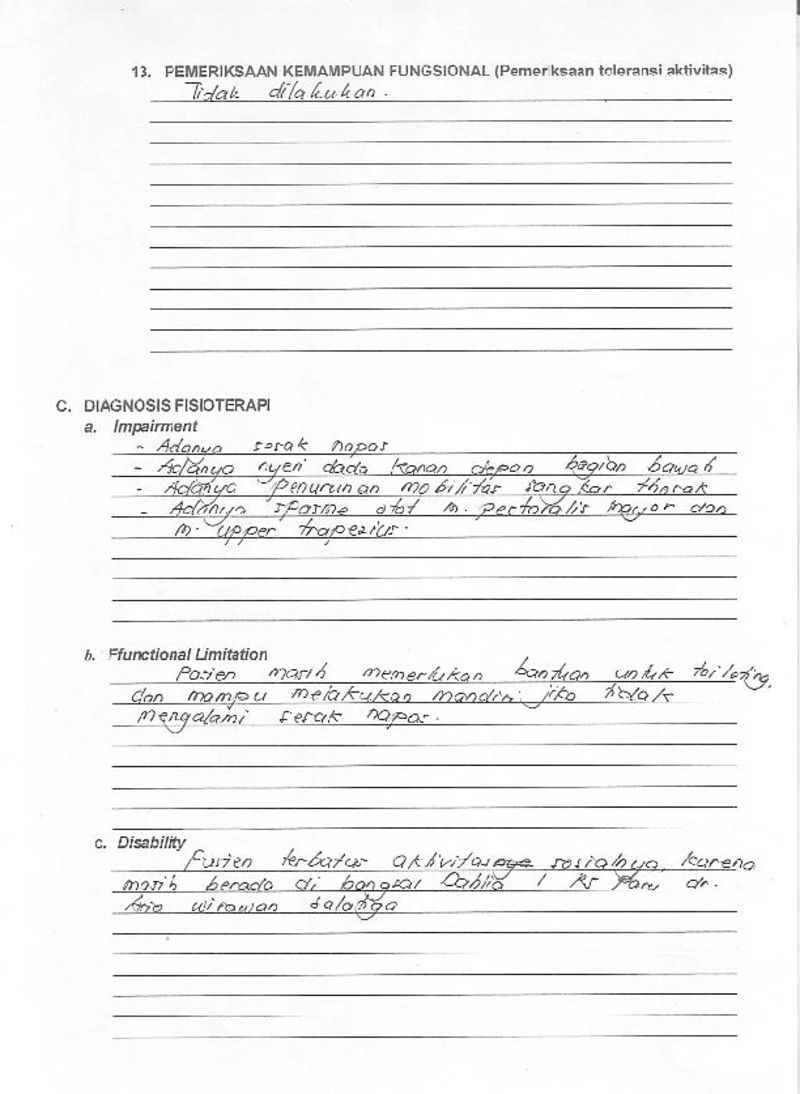 13. PEMERIKSAAN KEMAMPUAN FUNGSIONAL (Pemeriksaan toleransi aktivitas)
Tidak dilakukan.
C. DIAGNOSIS FISIOTERAPI
a. Impairment
- Adanya sesak napas
- Adanya nyeri dada kanan depan bagian bawah
- Adanya penurunan mobilitas sangkar thorak
- Adanya spasme otot m. pectoralis mayor dan
m. upper trapezius.
b. Ffunctional Limitation
Pasien masih memerlukan bantuan untuk toileting,
dan mampu melakukan mandiri jika tidak
mengalami sesak napas.
c. Disability
Pasien terbatas aktivitasnya sosialnya, karena
masih berada di bangsal Dahlia 1 RS Paru dr.
Ario Wirawan Salatiga